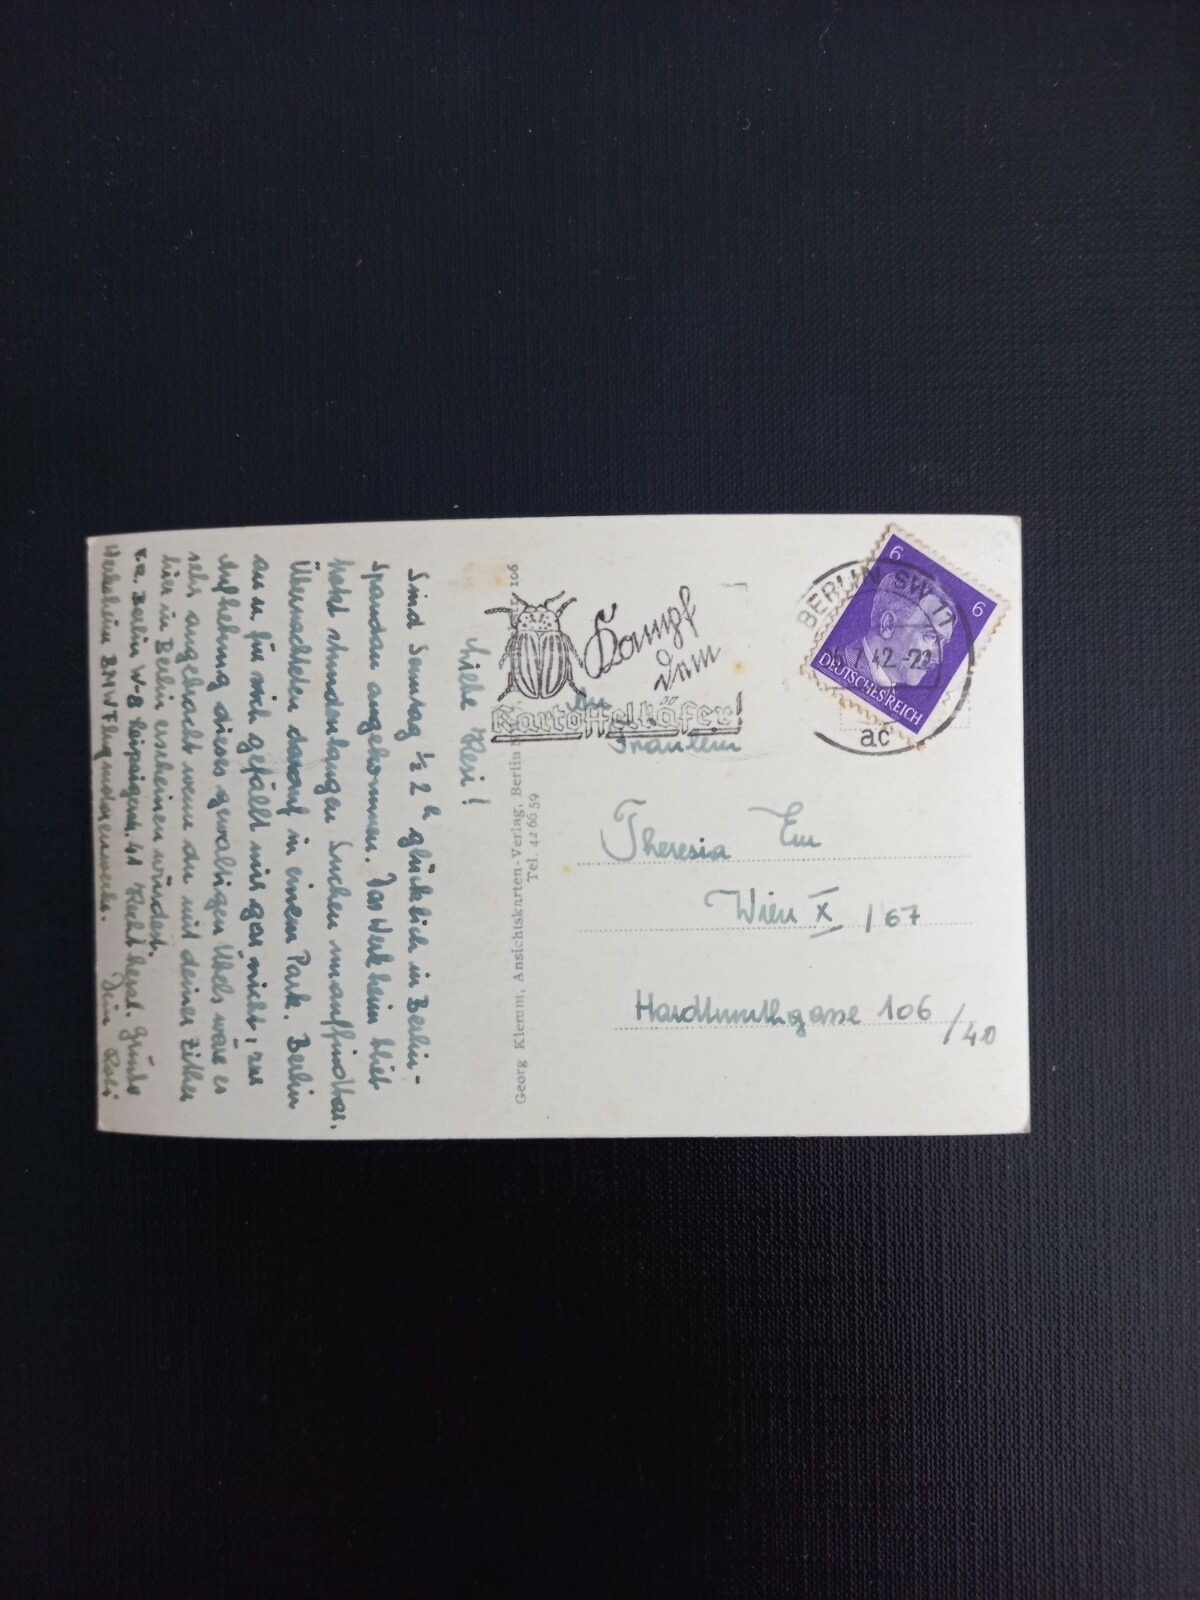 Liebe Resi!
Sind Sonntag ½ 2 h glücklich in Berlin-
Spandau angekommen. Das Werkheim blieb
trotz stundenlangen Suchen unauffindbar.
Übernachteten darauf in einem Park. Berlin
an u. für sich gefällt mir gar nicht, zur
Aufhebung dieses gewaltigen Übels wäre es
sehr angebracht wenn du mit deiner Zither
hier in Berlin erscheinen würdest.
Berlin W-8 Leipzigerstr. 41 Recht herzl. Grüße
Werksheim BMW Flugmotorenwerke. Dein
Georg Klemm, Ansichtskarten-Verlag, Berlin 106
Tel. 42 66 59
Kampf
dem
Kartoffelkäfer!
BERLIN SW 11
42.-22
ac
6
6
DEUTSCHES REICH
An
Fräulein
Theresia
Wien X / 67
Hardtmuthgasse 106 / 40